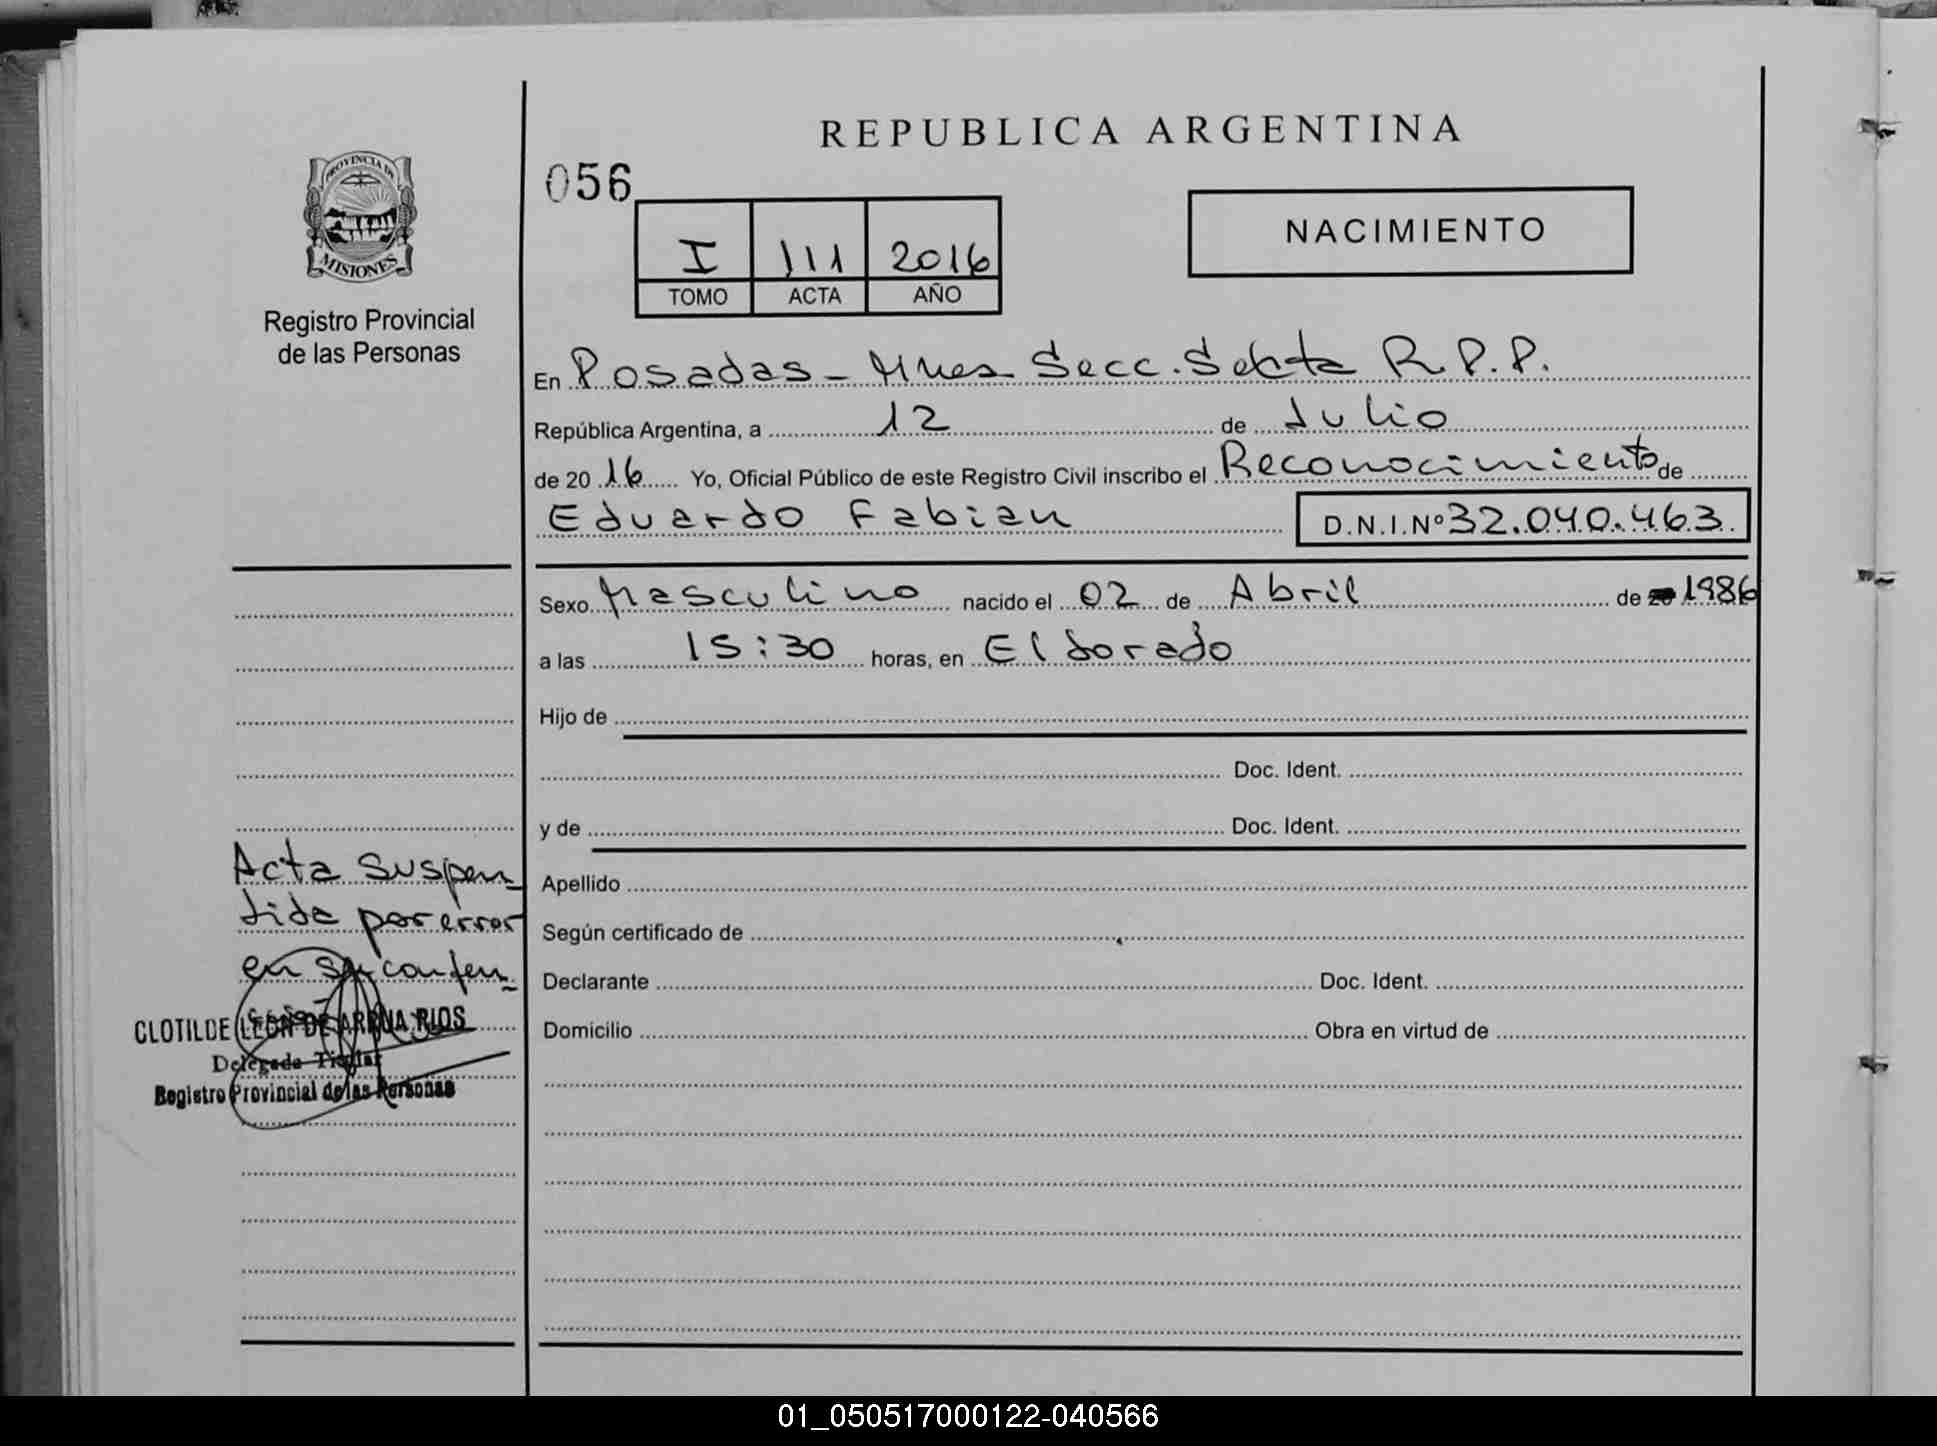 REPUBLICA ARGENTINA
PROVINCIA DE
MISIONES
Registro Provincial
de las Personas
056
I 111 2016
TOMO ACTA AÑO
NACIMIENTO
En Posadas - Mnes Secc. Sexta R.P.P.
República Argentina, a 12 de Julio
de 2016 Yo, Oficial Público de este Registro Civil inscribo el Reconocimiento de
Eduardo Fabian D.N.I.Nº 32.040.463.
Sexo Masculino nacido el 02 de Abril de 1986
a las 15:30 horas, en Eldorado
Hijo de
Doc. Ident.
y de Doc. Ident.
Apellido
Según certificado de
Declarante Doc. Ident.
Domicilio Obra en virtud de
Acta suspen-
dida por error
en su confec-
CLOTILDE LEON DE ARRUA RIOS
Delegada Titular
Registro Provincial de las Personas
01_050517000122-040566